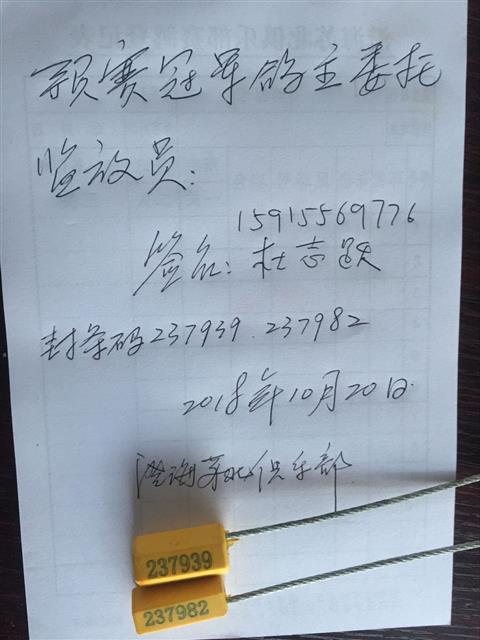 预赛冠军鸽主委托
监放员:
15915569776
签名: 杜志跃
封条码237939.237982
2018年10月20日.
澄海莱北俱乐部
237939
237982